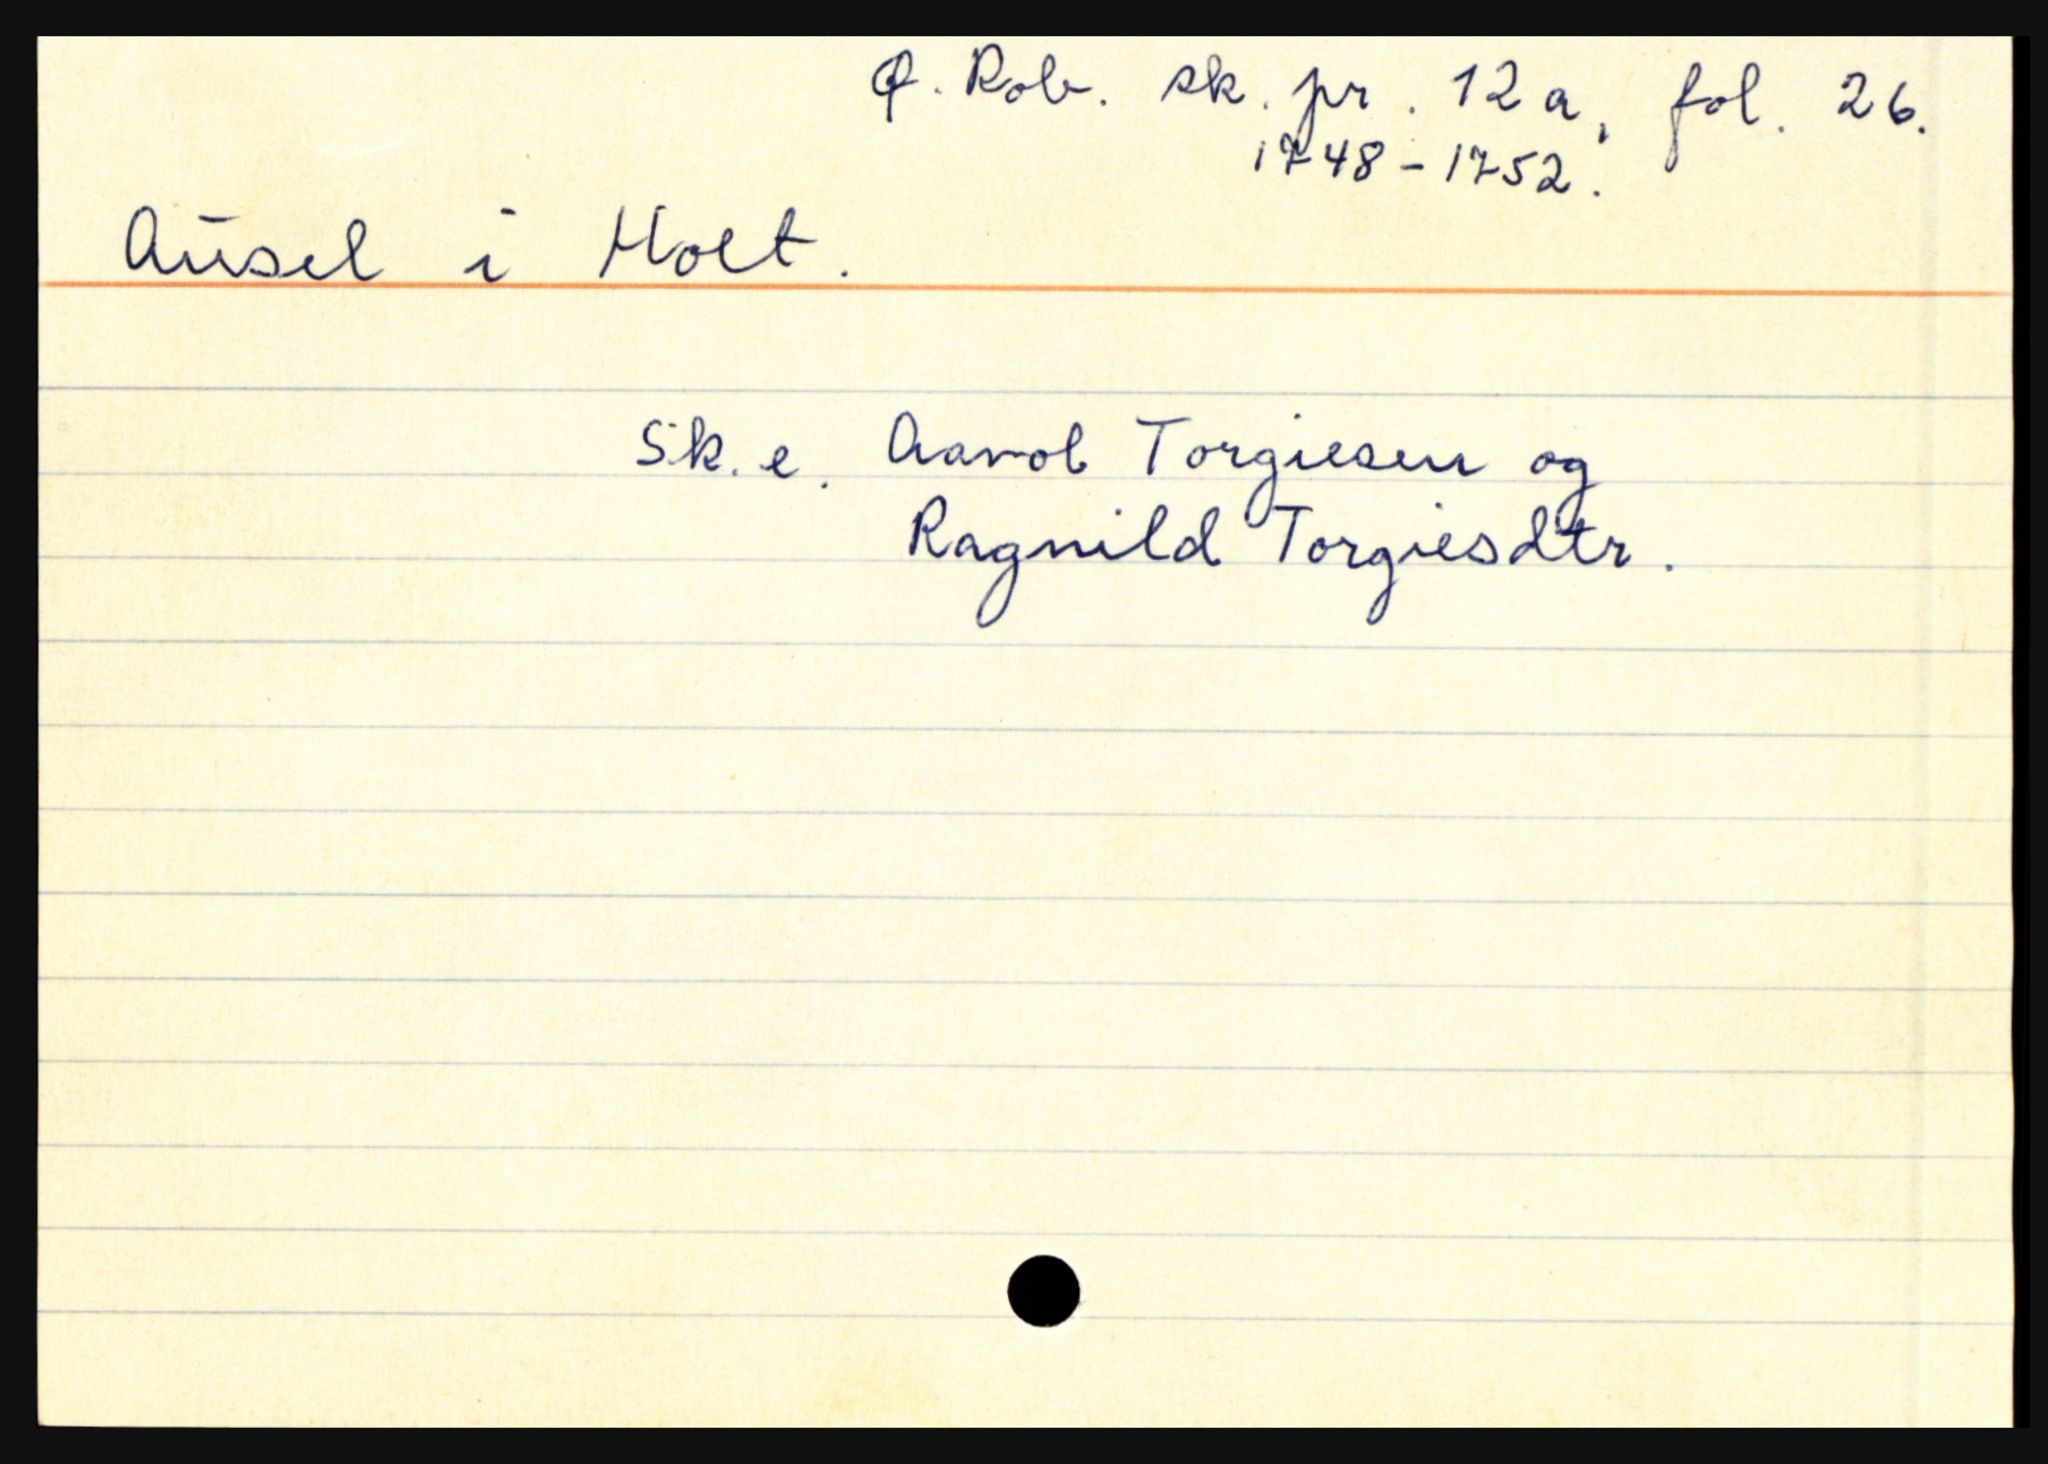 Ø. Rob. sk. pr. 12a, fol. 26.
1748-1752.
Ausel i Holt.
Sk. e. Aavob Torgiesen og
Ragnild Torgiesdtr.